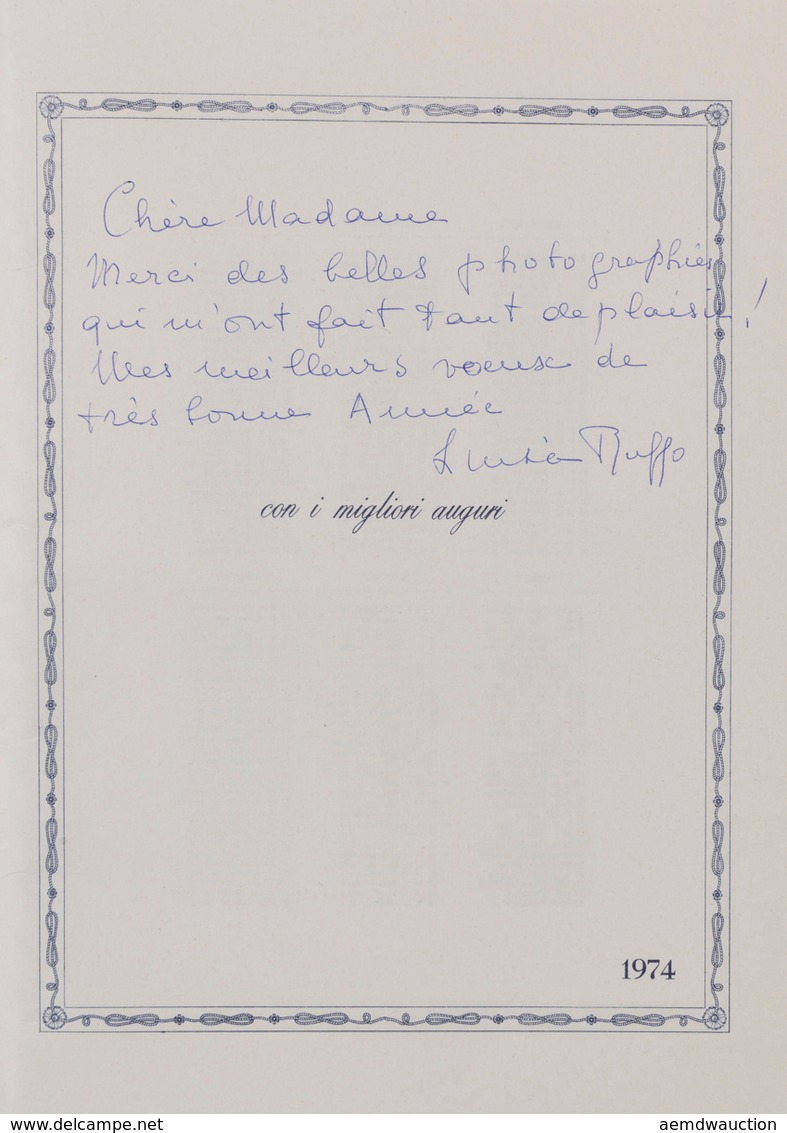 Chère Madame
Merci des belles photographies
qui m'ont fait tant de plaisir !
Mes meilleurs voeux de
très bonne Année
Ruffo
con i migliori auguri
1974
www.delcampe.net
aemdwauction